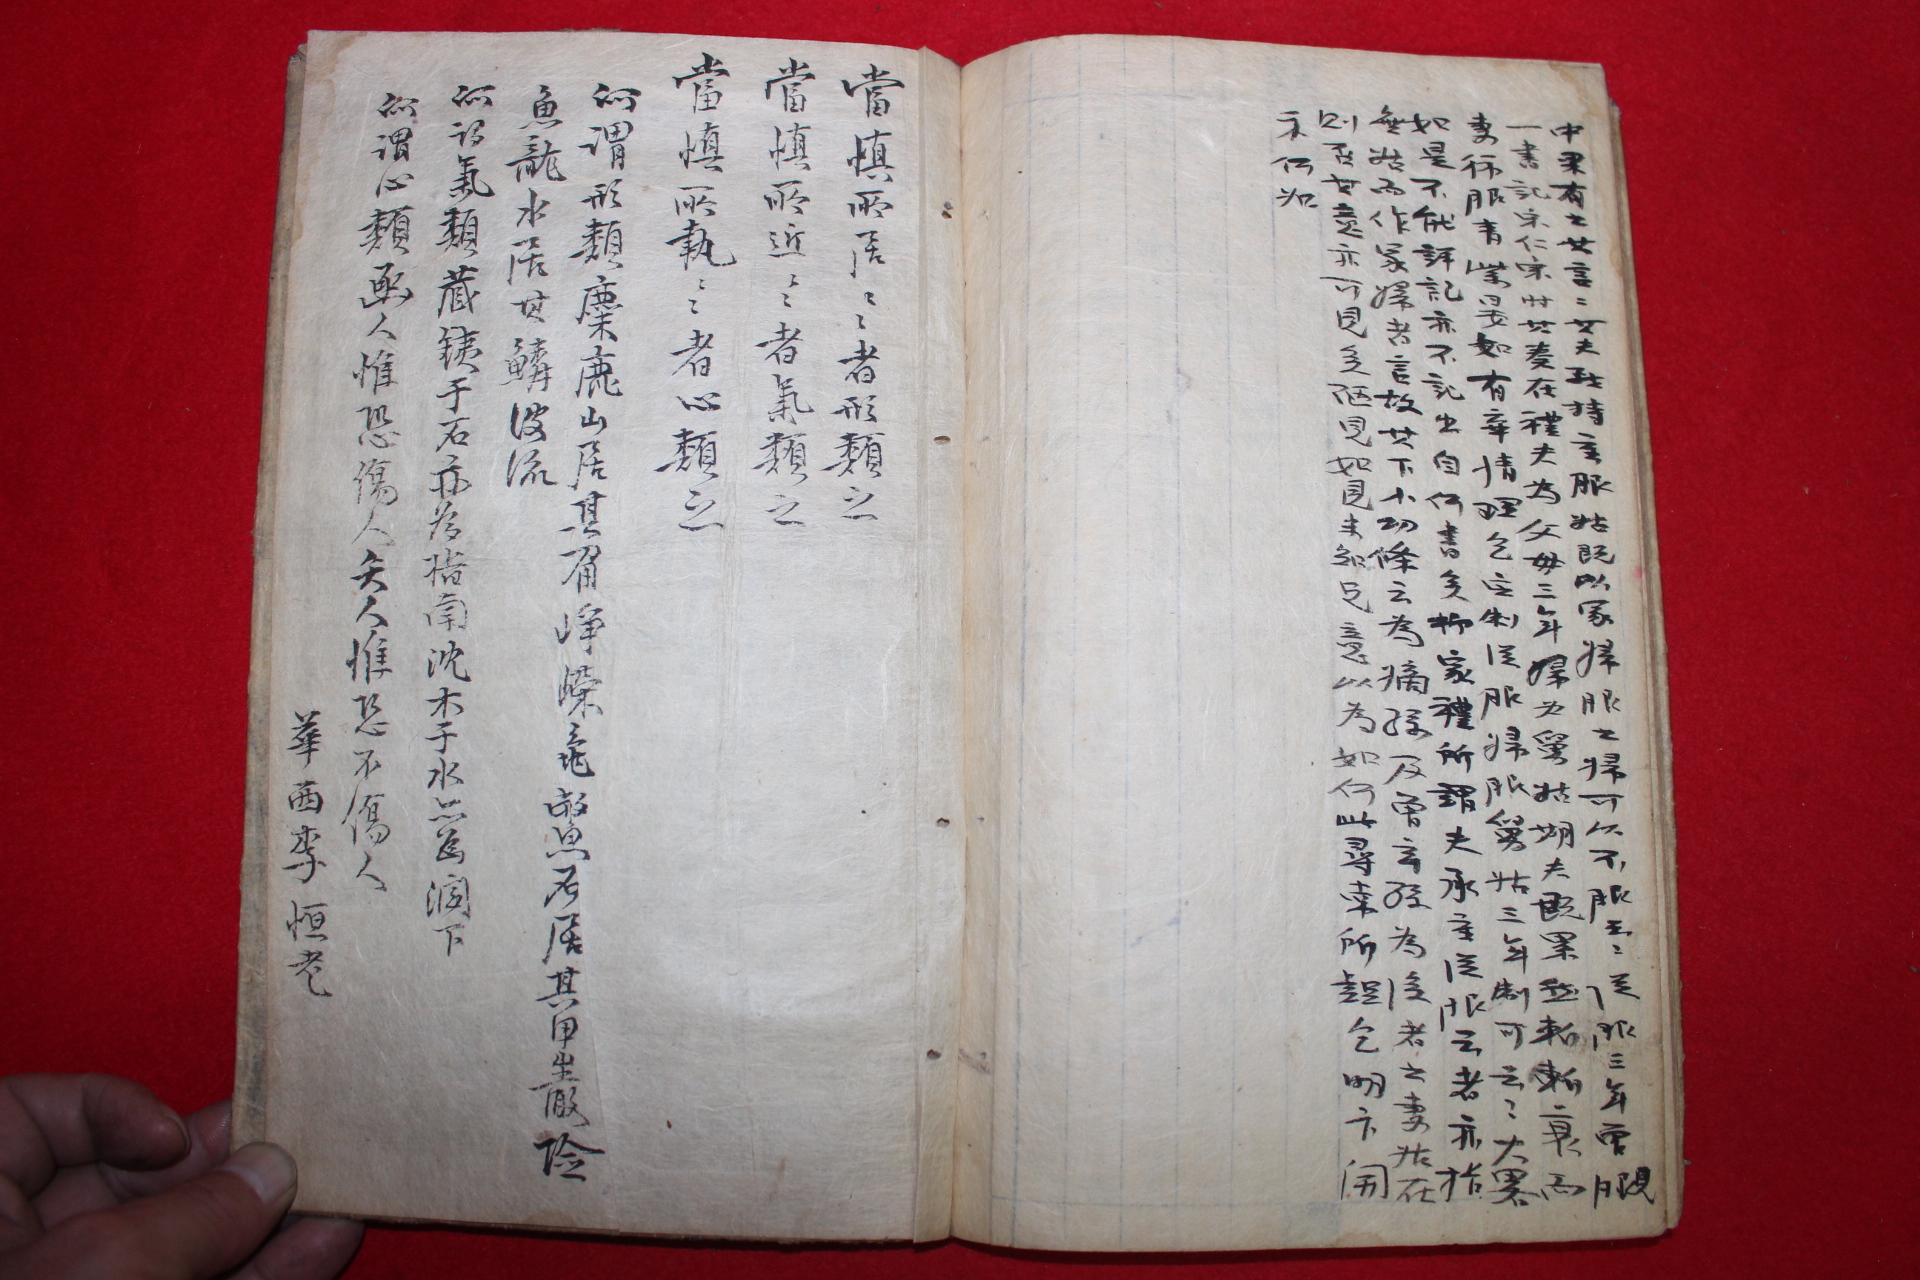 中果有之其言〻其夫改持主服姑既以冢婦服之婦可以不服云〻從服三年當服
一書記宋仁宋世其奏在禮夫為父母三年婦為舅姑期夫既累然斬斬二衰而
妻衫服青
如有辛情理乞定制從服婦服舅姑三年制可云〻大畧
如是不能詳記亦不記出自何書矣抑家禮所謂夫承重從服云者亦指
無姑而作冢婦者言故其下小功條云為
孫及曾玄孫為後者之妻姑在
則否其意亦可見矣陋見如見未知
意以為如何此尋索所
乞明卞開
示何如
當慎所居〻者形類之
當慎所近〻者氣類之
當慎所執〻者心類之
所謂形類麋鹿山居其角崢嶸黿鰲石居其甲巉險
魚龍水居其鱗波流
所謂氣類藏鐵于石而為指南沈木于水
下
所謂心類函人惟恐傷人矢人惟恐不傷人
華西李恒老